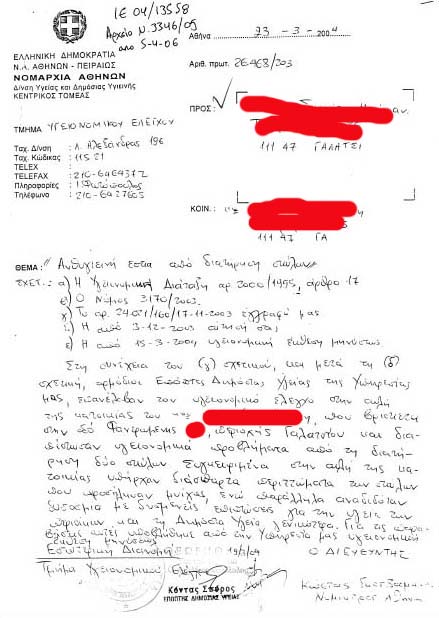 ΙΕ 04/13558
Αρχείο Ν. 3346/05
από 5-4-06
ΕΛΛΗΝΙΚΗ ΔΗΜΟΚΡΑΤΙΑ
Ν.Α. ΑΘΗΝΩΝ - ΠΕΙΡΑΙΩΣ
ΝΟΜΑΡΧΙΑ ΑΘΗΝΩΝ
Δ/νση Υγείας και Δημόσιας Υγιεινής
ΚΕΝΤΡΙΚΟΣ ΤΟΜΕΑΣ
Αθήνα 23-3-2004
Αρθ. πρωτ. 26468/203
ΠΡΟΣ:
111 47 ΓΑΛΑΤΣΙ
ΤΜΗΜΑ ΥΓΕΙΟΝΟΜΙΚΟΥ ΕΛΕΓΧΟΥ
Ταχ. Δ/νση : Λ. Αλεξάνδρας 196
Ταχ. Κώδικας : 11521
TELEX :
TELEFAX : 210-6464372
Πληροφορίες : Ι. Φωτόπουλος
Τηλέφωνο : 210-6427603
ΚΟΙΝ.:
111 47 ΓΑ
ΘΕΜΑ: "Ανθυγιεινή εστία από διατήρηση σκύλων"
ΣΧΕΤ.: α) Η Υγειονομική Διάταξη αρ. 2000/1995, άρθρο 17
β) Ο Νόμος 3170/2003
γ) Το αρ. 24021/160/17-11-2003 έγγραφό μας
δ) Η από 3-12-2003 αίτησή σας
ε) Η από 15-3-2004 υγειονομική έκθεση μηνύσεως
Στη συνέχεια του (γ) σχετικού, και μετά τη (δ)
σχετική, αρμόδιοι Επόπτες Δημόσιας Υγείας της Υπηρεσίας
μας, επανέλαβαν τον υγειονομικό έλεγχο στην αυλή
της κατοικίας του, που βρίσκεται
στην οδό Φανερωμένης, περιοχής Γαλατσίου και δια-
πίστωσαν υγειονομικά προβλήματα από τη διατή-
ρηση δύο σκύλων. Συγκεκριμένα στην αυλή της κα-
τοικίας υπήρχαν διάσπαρτα περιττώματα των σκύλων
που προσήλκυαν μυίγες, ενώ παράλληλα αναδίδονταν
δυσοσμία με δυσμενείς επιπτώσεις για την υγεία των
περιοίκων και τη Δημόσια Υγεία γενικότερα. Για τις παρα-
βάσεις αυτές υποβλήθηκε από την Υπηρεσία μας υγειονομική
έκθεση μηνύσεως.
Εσωτερική Διανομή 19/3/04 Ο ΔΙΕΥΘΥΝΤΗΣ
Τμήμα Υγειονομικού Ελέγχου
Κόντας Σπύρος
ΕΠΟΠΤΗΣ ΔΗΜΟΣΙΑΣ ΥΓΕΙΑΣ
Κώστας
Νομίατρος Αθηνών